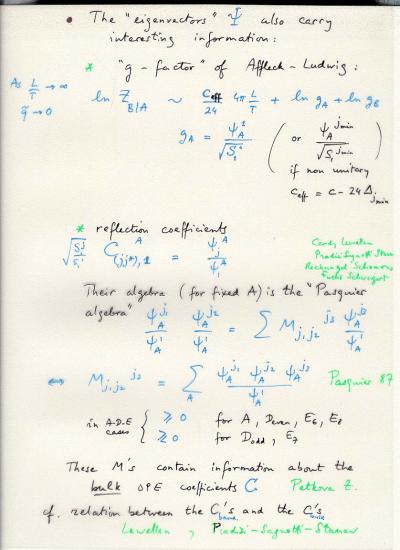 • The "eigenvectors" Ψ also carry
interesting information:
* "g-factor" of Affleck-Ludwig:
As L/T → ∞
q̃ → 0
ln Z_{B|A} ~ C_eff/24 4π L/T + ln g_A + ln g_B
g_A = ψ_A^1 / √S_1^1 ( or ψ_A^{jmin} / √S_1^{jmin}
if non unitary )
C_eff = C - 24 Δ_{jmin}
* reflection coefficients
√(S_1^j/S_1^1) C^A_{(jj*),1} = ψ_A^j / ψ_A^1
Cardy, Lewellen
Pradisi Sagnotti Stanev
Recknagel Schomerus
Fuchs Schweigert
Their algebra (for fixed A) is the "Pasquier
algebra" ψ_A^{j1}/ψ_A^1 ψ_A^{j2}/ψ_A^1 = Σ M_{j1 j2}^{j3} ψ_A^{j3}/ψ_A^1
⟺ M_{j1 j2}^{j3} = Σ_A ψ_A^{j1} ψ_A^{j2} ψ_A^{j3} / ψ_A^1 Pasquier 87
in A-D-E cases { ≥ 0 for A, Deven, E6, E8
≱ 0 for Dodd, E7
These M's contain information about the
bulk OPE coefficients C Petkova Z.
cf. relation between the C's and the C's
Lewellen, Pradisi-Sagnotti-Stanev